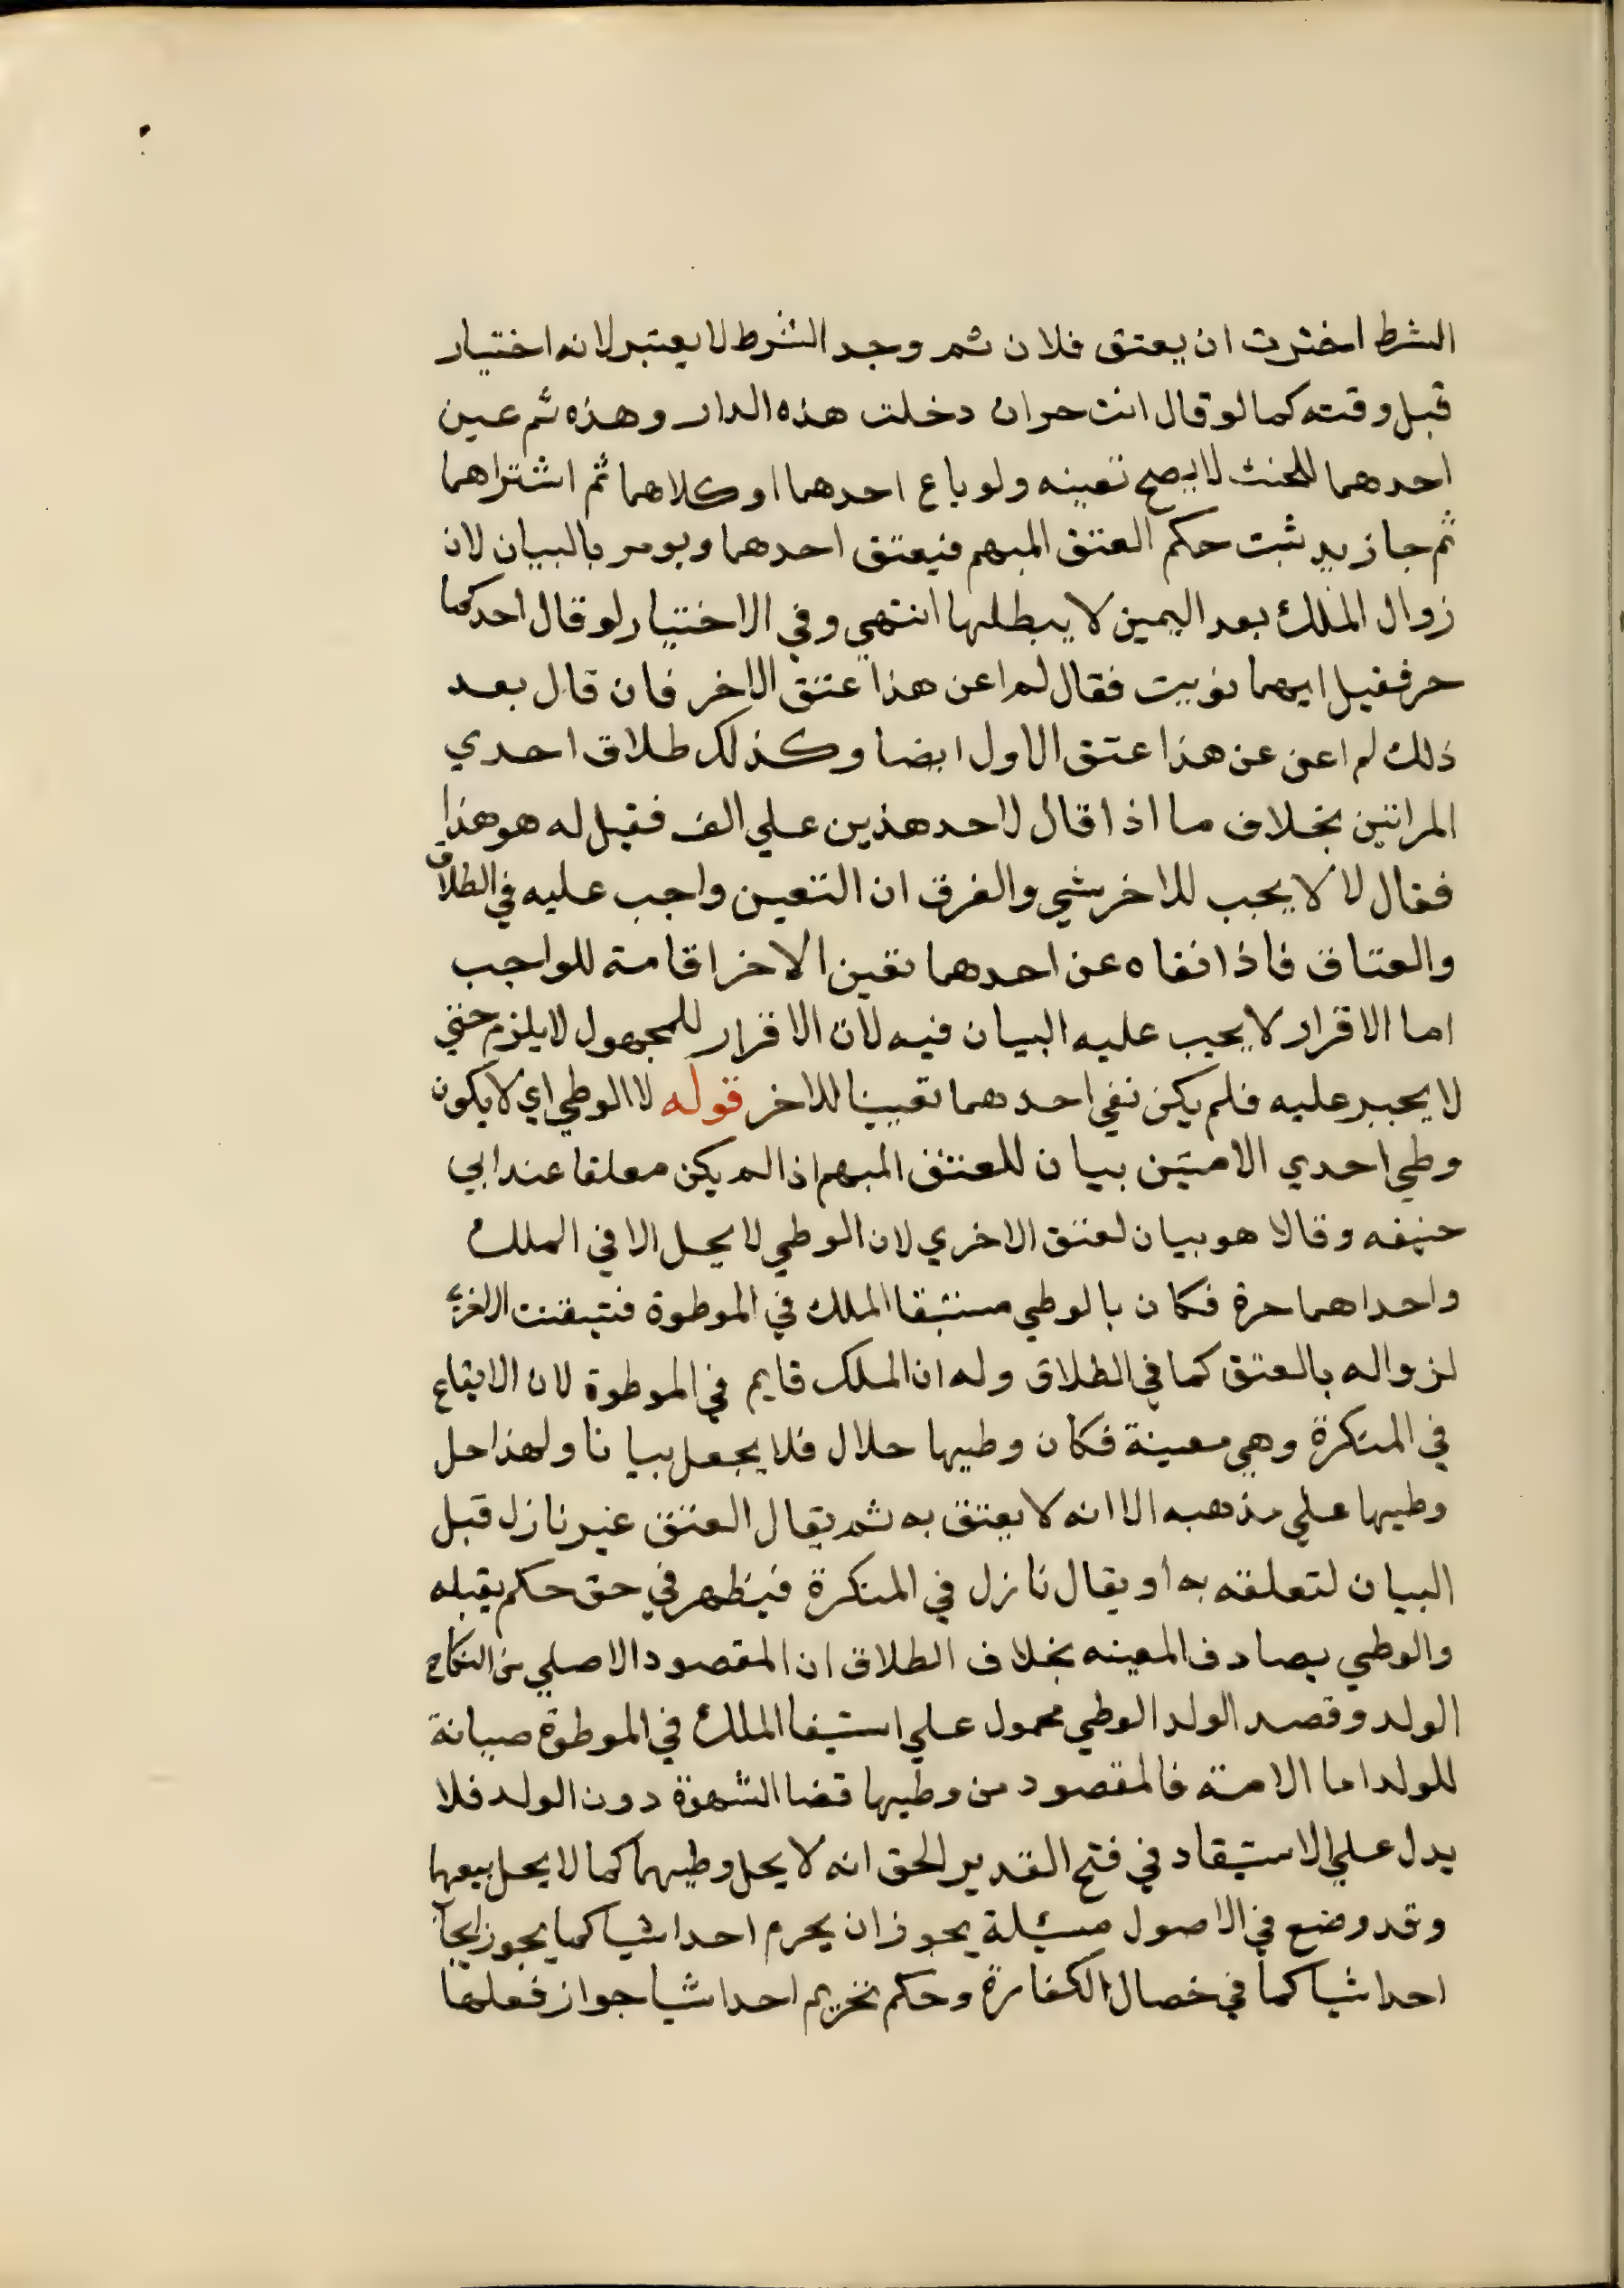 الشرط اخترت ان يعتق فلان ثم وجد الشرط لا يعتبر لانه اختيار
قبل وقته كما لو قال انت حر ان دخلت هذه الدار وهذه ثم عين
احدهما للحنث لا يصح تعينه ولو باع احدهما او كلاهما ثم اشتراهما
ثم جا زيد ثبت حكم العتق المبهم فيعتق احدهما ويومر بالبيان لان
زوال الملك بعد اليمين لا يبطلها انتهي وفي الاختيار لو قال احدكما
حر فقيل ايهما نويت فقال لم اعن هذا عتق الاخر فان قال بعد
ذلك لم اعن عن هذا عتق الاول ايضا وكذلك طلاق احدي
المراتين بخلاف ما اذا قال لاحد هذين علي الف فقيل له هو هذا
فقال لا لا يجب للاخر شي والفرق ان التعين واجب عليه في الطلاق
والعتاق فاذا نفاه عن احدهما تعين الاخر اقامة للواجب
اما الاقرار لا يجب عليه البيان فيه لان الاقرار للمجهول لا يلزم حتي
لا يجبر عليه فلم يكن نفي احدهما تعيينا للاخر قوله لا الوطي اي لا يكون
وطي احدي الامتين بيان للعتق المبهم اذا لم يكن معلقا عند ابي
حنيفه وقالا هو بيان لعتق الاخري لان الوطي لا يحل الا في الملك
واحداهما حرة فكان بالوطي مستبقا الملك في الموطوة فتيقنت
لزواله بالعتق كما في الطلاق وله ان الملك قايم في الموطوة لان الايقاع
في المنكرة وهي معينة فكان وطيها حلال فلا يجعل بيانا ولهذا حل
وطيها علي مذهبه الا انه لا يعتق به ثم يقال العتق غير نازل قبل
البيان لتعلقه به او يقال نازل في المنكرة فيظهر في حق حكم يقبله
والوطي يصادف المعينه بخلاف الطلاق ان المقصود الاصلي من النكاح
الولد وقصد الولد الوطي محمول علي استيفا الملك في الموطوة صيانة
للولد اما الامة فالمقصود من وطيها قضا الشهوة دون الولد فلا
يدل علي الاستيقاد في فتح القدير الحق انه لا يحل وطيهما كما لا يحل بيعها
وقد وضع في الاصول مسئلة يجوز ان يحرم احد اشيا كما يجوز ايجاب
احد اشيا كما في خصال الكفارة وحكم تحريم احد اشيا جواز فعلها